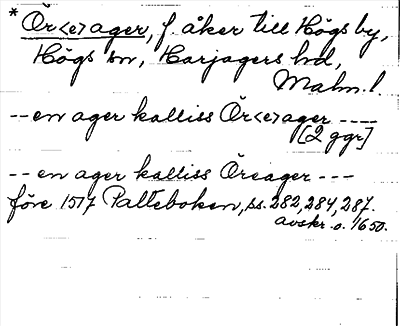 * Ör<e>ager, f. åker till Högs by,
Högs sn, Harjagers hd,
Malm. l.
-- en ager kalliss Ör<e>ager ----
[2 ggr]
-- en ager kalliss Öreager ---
före 1517 Palteboken, ss. 282, 284, 287.
avskr. o. 1650.